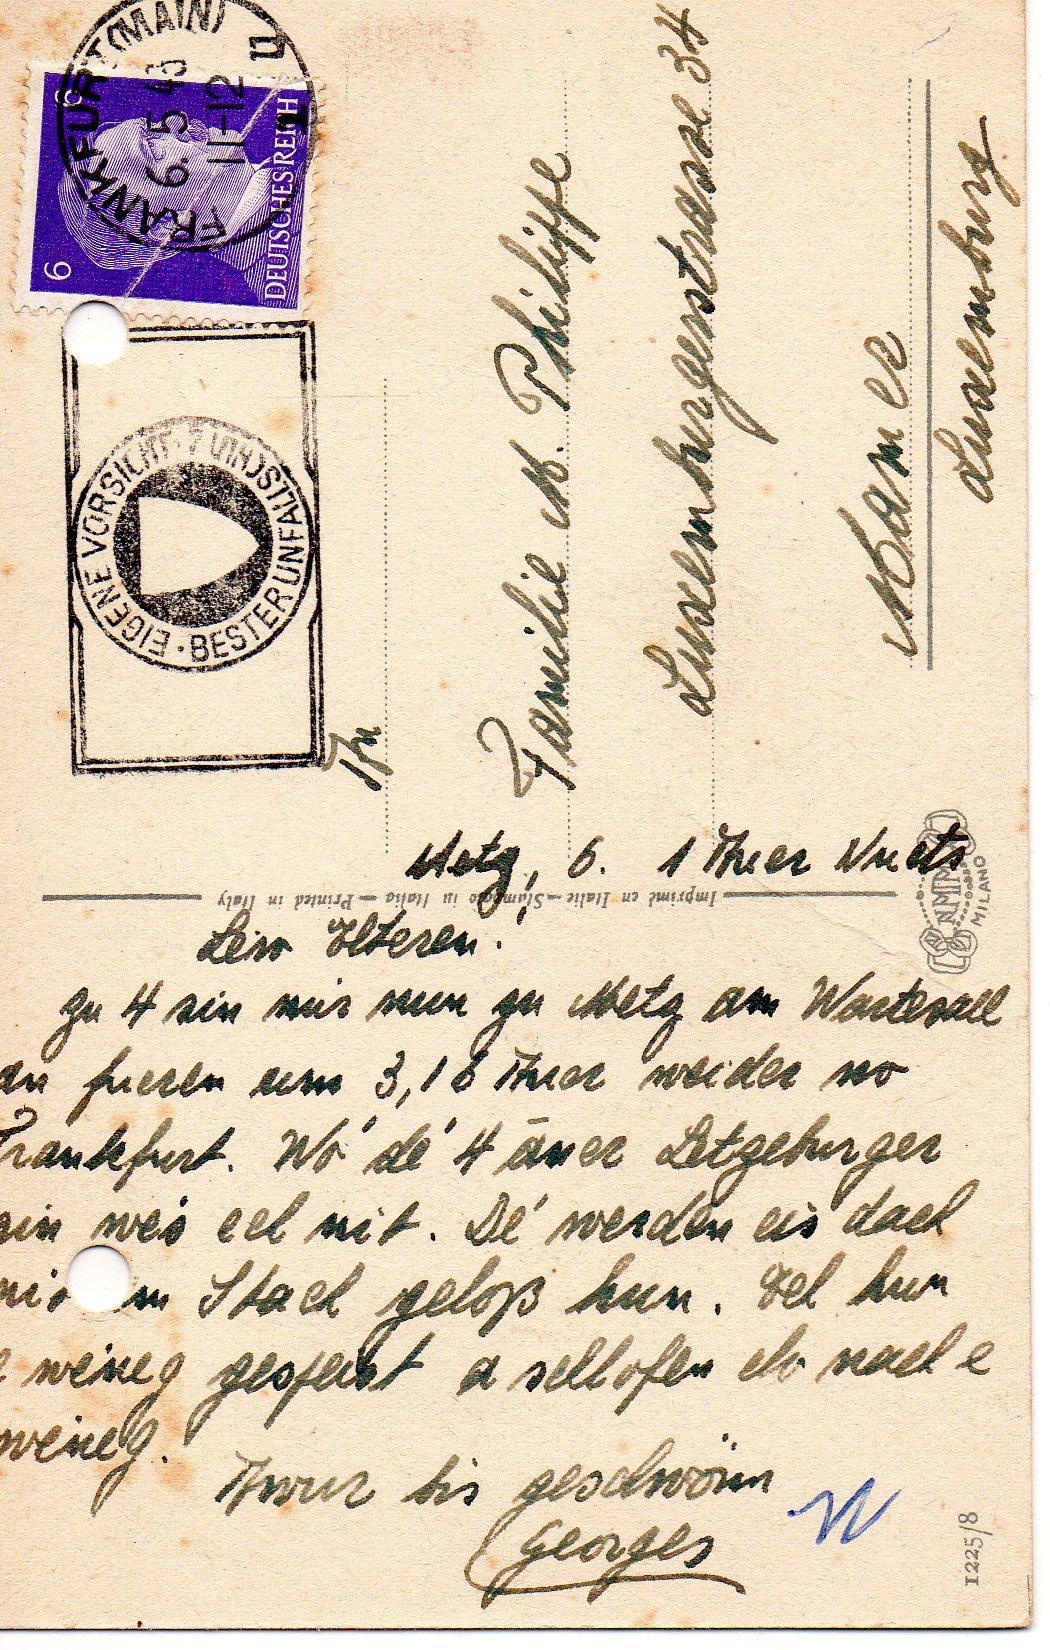 FRANKFURT (MAIN)
6.5.43
11-12
6
6
DEUTSCHES REICH
EIGENE VORSICHT
BESTER UNFALLSCHUTZ
An
Familie M. Philippe
Luxemburgerstrasse 34
Kamer
Luxemburg
Metz, 6. 1 Auer Nuets
Imprimé en Italie – Stampato in Italia – Printed in Italy
NMM
MILANO
Léiw Elteren!
Zu 4 sin mir nun zu Metz am Wartesall
an fueren um 3,18 Auer weider no
Frankfurt. Wó dé 4 äner Letzeburger
sin wés ech nit. Dé werden eis dach
nit am Stach geloß hun. Ech hun
e wéneg gespeist a schlofen elo nach e
wéneg.
Awur bis geschwënn
Georges
N
1225/8